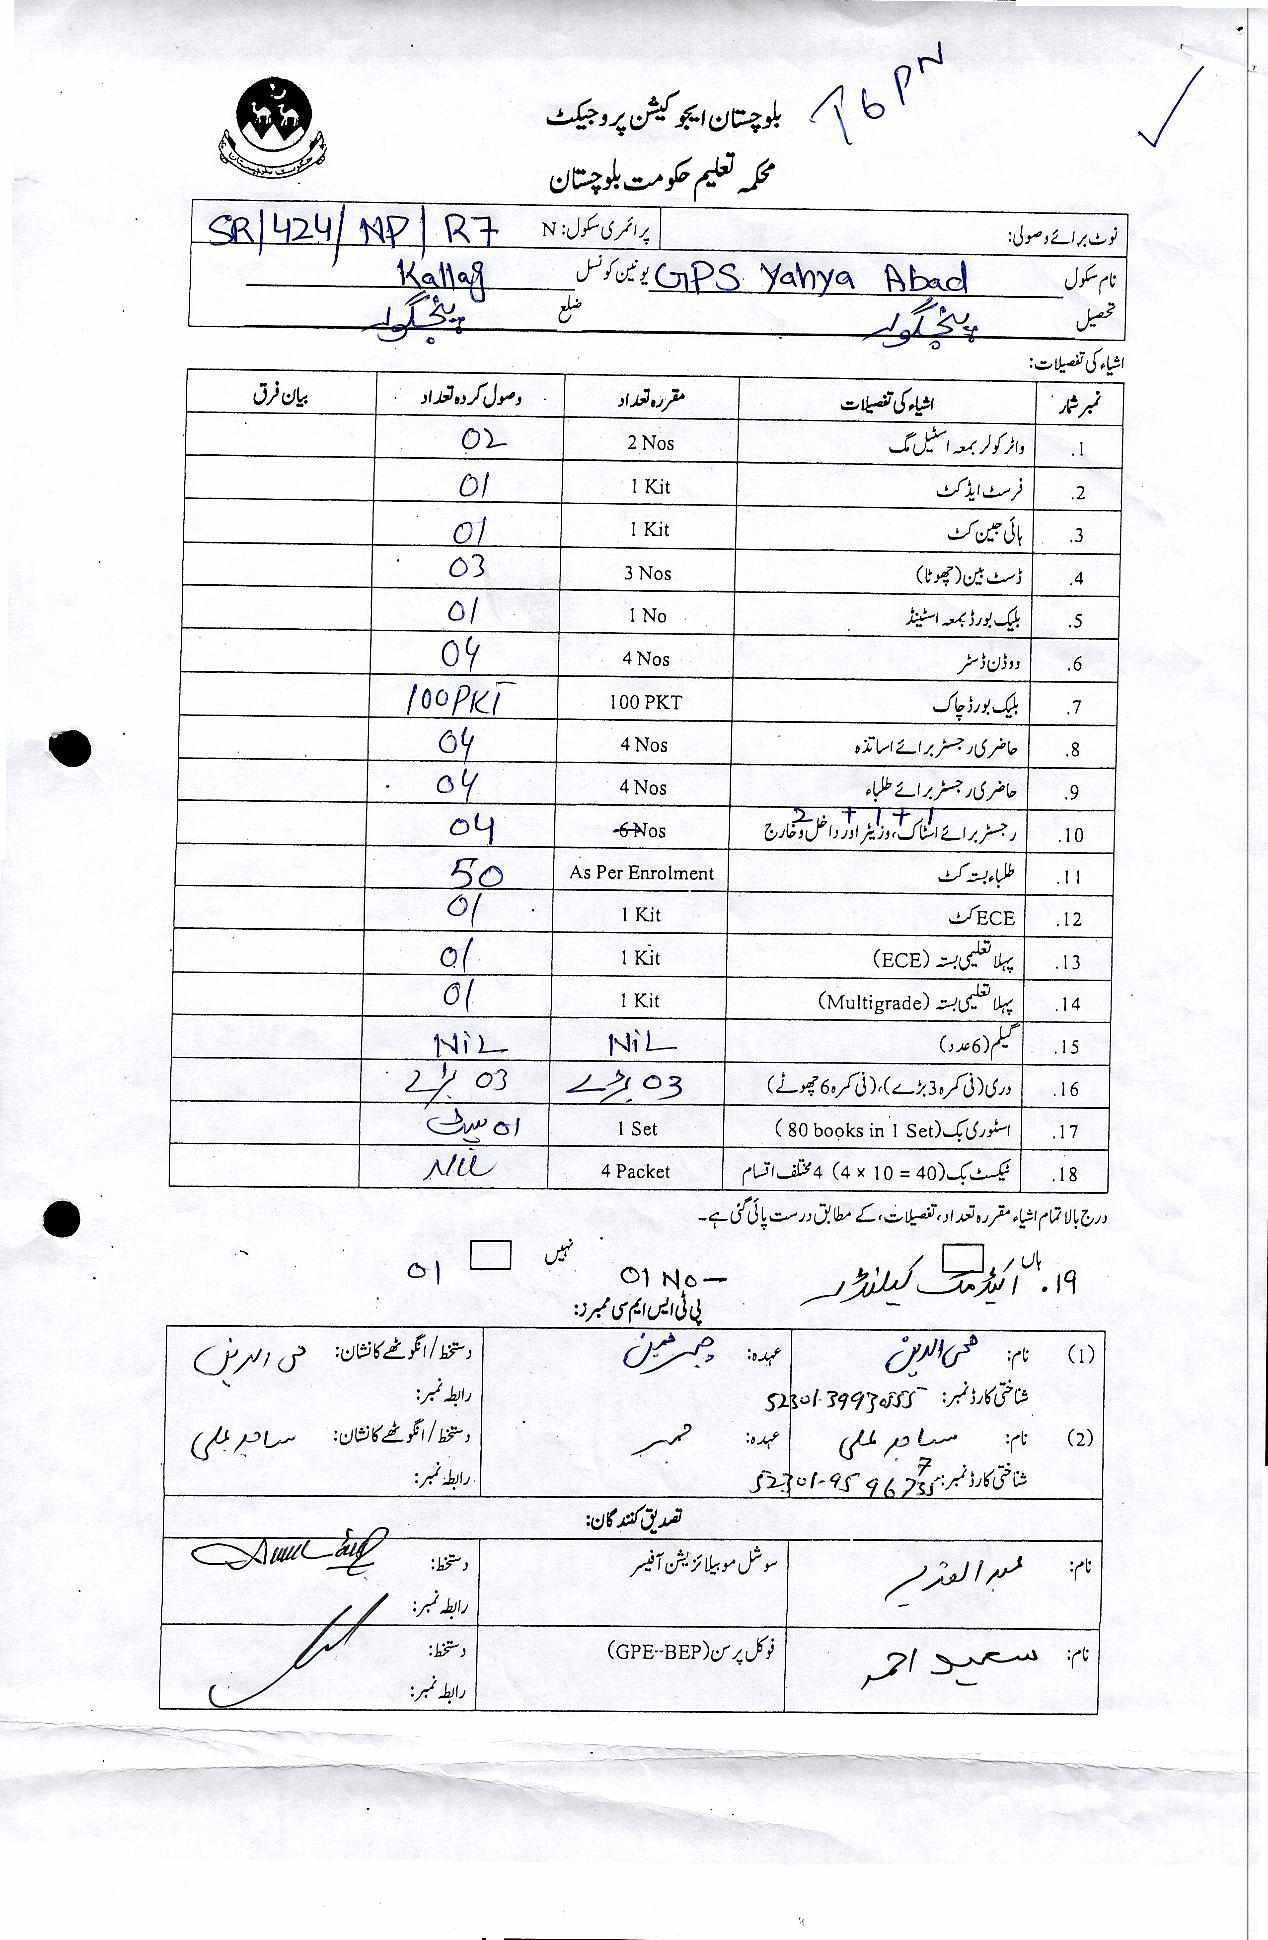 بلوچستان ایجوکیشن پروجیکٹ T6PN
محکمہ تعلیم حکومت بلوچستان
حکومت بلوچستان
نوٹ برائے وصولی: پرائمری سکول: N SR/424/NP/R7
نام سکول GPS Yahya Abad یونین کونسل Kallag
تحصیل پنجگور ضلع پنجگور
اشیاء کی تفصیلات:
نمبر شمار اشیاء کی تفصیلات مقررہ تعداد وصول کردہ تعداد بیان فرق
1. واٹر کولر بمعہ اسٹیل مگ 2 Nos 02
2. فرسٹ ایڈ کٹ 1 Kit 01
3. ہائی جین کٹ 1 Kit 01
4. ڈسٹ بین (چھوٹا) 3 Nos 03
5. بلیک بورڈ بمعہ اسٹینڈ 1 No 01
6. ووڈن ڈسٹر 4 Nos 04
7. بلیک بورڈ چاک 100 PKT 100 PKT
8. حاضری رجسٹر برائے اساتذہ 4 Nos 04
9. حاضری رجسٹر برائے طلباء 4 Nos 04
2 + 1 + 1
10. رجسٹر برائے اسٹاک، وزیٹر اور داخل و خارج 6 Nos 04
11. طلباء بستہ کٹ As Per Enrolment 50
12. ECE کٹ 1 Kit 01
13. پہلا تعلیمی بستہ (ECE) 1 Kit 01
14. پہلا تعلیمی بستہ (Multigrade) 1 Kit 01
15. گلیم (6 عدد) NiL NiL
16. دری (فی کمرہ 3 بڑے)، (فی کمرہ 6 چھوٹے) 03 بڑے 03 بڑے
17. اسٹوری بک (80 books in 1 Set) 1 Set 01 سیٹ
18. ٹیکسٹ بک (4 x 10 = 40) 4 مختلف اقسام 4 Packet Nil
درج بالا تمام اشیاء مقررہ تعداد، تفصیلات، کے مطابق درست پائی گئی ہے۔
ہاں نہیں
۱۹. اکیڈمک کیلنڈر 01 No — 01
پی ٹی ایس ایم سی ممبرز:
(1) نام: محی الدین عہدہ: چیرمین دستخط/انگوٹھے کا نشان: محی الدین
شناختی کارڈ نمبر: رابطہ نمبر:
(2) نام: ساجد علی عہدہ: ممبر دستخط/انگوٹھے کا نشان: ساجد علی
شناختی کارڈ نمبر: رابطہ نمبر:
تصدیق کنندگان:
نام: سوشل موبیلائزیشن آفیسر دستخط:
رابطہ نمبر:
نام: سعید احمد فوکل پرسن (GPE--BEP) دستخط:
رابطہ نمبر: